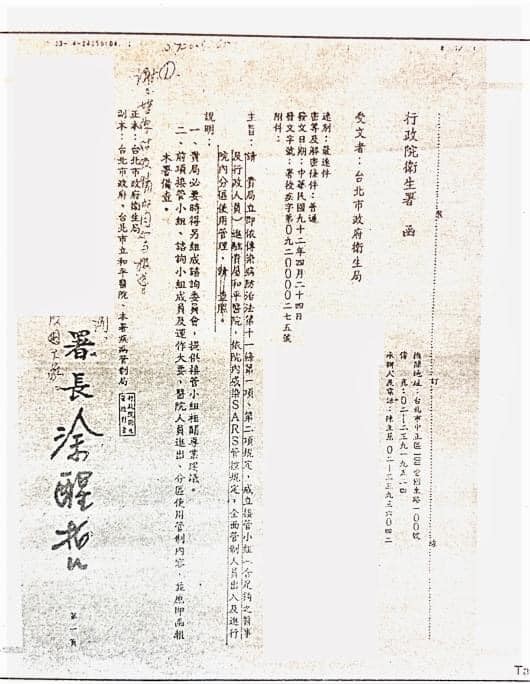 行政院衛生署 函
機關地址：台北市中正區一00愛國東路一00號
傳 真：0二—二三九一九五二四
受文者：台北市政府衛生局
速別：最速件
密等及解密條件：普通
發文日期：中華民國九十二年四月二十四日
發文字號：署授疾字第0九二0000二七五號
附件：
主旨：請 貴局立即依傳染病防治法第十一條第一項、第二項規定，成立接管小組（含足夠之醫事
及行政人員）進駐貴局和平醫院，依院內感染SARS管控規定，全面管制人員出入及進行
院內分區使用管理，請 查照。
說明：
一、貴局必要時得另組成諮詢委員會，提供接管小組相關專業建議。
二、前項接管小組、諮詢小組成員及運作大要、醫院人員進出、分區使用管制內容，並應即函報
本署備查。
正本：台北市政府衛生局
副本：台北市政府、台北市立和平醫院、本署疾病管制局
署長涂醒哲
第一頁
訂
線
Ta